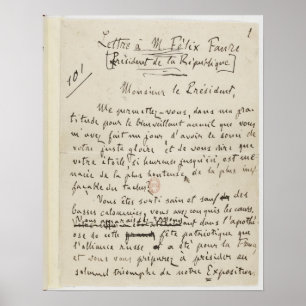 1
Lettre à M. Félix Faure
Président de la République
Monsieur le Président,
Me permettez-vous, dans ma gra-
titude pour le bienveillant accueil que vous
m'avez fait un jour, d'avoir le souci de
votre juste gloire et de vous dire que
votre étoile, si heureuse jusqu'ici, est me-
nacée de la plus honteuse, de la plus inef-
façable des taches?
Vous êtes sorti sain et sauf des
basses calomnies, vous avez conquis les cœurs.
Vous apparaissez dans l'apothé-
ose de cette fête patriotique que
l'alliance russe a été pour la
et vous vous préparez à présider au
solennel triomphe de notre Exposition